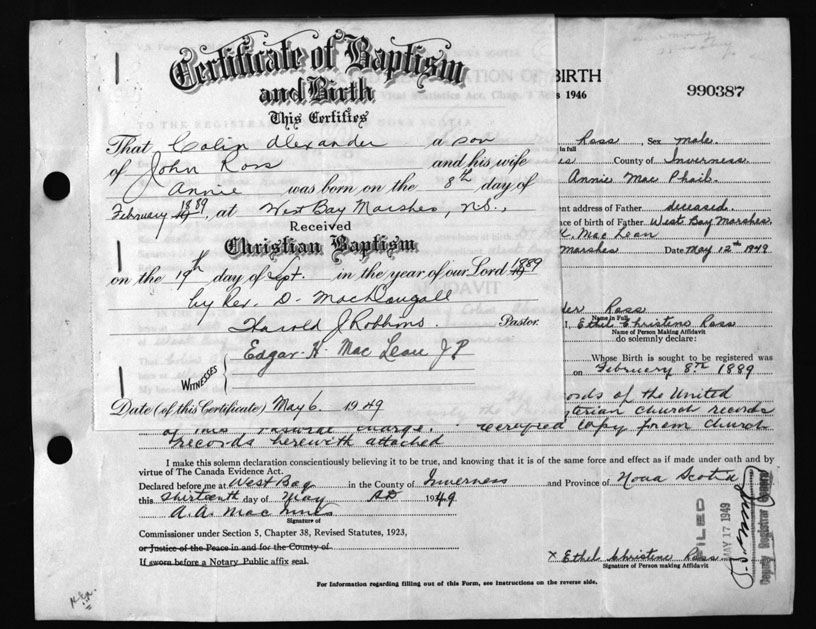 Certificate of Baptism
and Birth
This Certifies
That Colin Alexander a son
of John Ross and his wife
Annie was born on the 8th day of
February 1889, at West Bay Marshes, N.S.,
Received
Christian Baptism
on the 19th day of Sept. in the year of our Lord 1889
by Rev. D. MacDougall
Harold J Robbins. Pastor.
WITNESSES
Edgar H. Mac Lean J P
Date (of this Certificate) May 6. 1949
BIRTH
1946
990387
Ross, Sex Male.
in full
County of Inverness
Annie Mac Phail.
address of Father deceased.
of birth of Father West Bay Marshes
Mac Lean
Marshes Date May 12th 1949
AVIT
Ross
Name in Full
I, Ethel Christine Ross
Name of Person Making Affidavit
do solemnly declare:
Whose Birth is sought to be registered was
on February 8th 1889
records of the United
church records
of this Pastoral Charge. Certified copy from church
records herewith attached
I make this solemn declaration conscientiously believing it to be true, and knowing that it is of the same force and effect as if made under oath and by
virtue of The Canada Evidence Act.
Declared before me at West Bay in the County of Inverness and Province of Nova Scotia
this thirteenth day of May AD 1949
A. A. Mac Innis
Signature of
Commissioner under Section 5, Chapter 38, Revised Statutes, 1923,
or Justice of the Peace in and for the County of
If sworn before a Notary Public affix seal.
x Ethel Christine Ross
Signature of Person making Affidavit
FILED
MAY 17 1949
Deputy Registrar General
For Information regarding filling out of this Form, see Instructions on the reverse side.